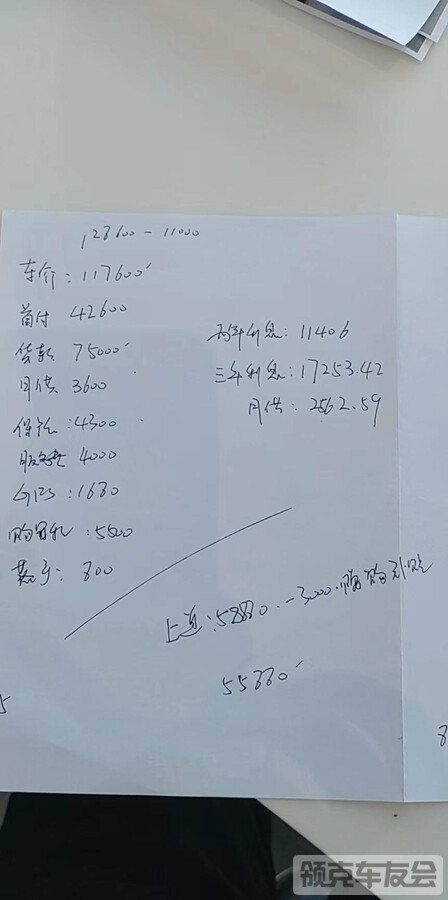 128600-11000
车价:117600
首付 42600
贷款 75000
月供 3600
保险:4300
服务 4000
GPS:1680
购置税:5500
户:800
两年利息:11406
三年利息:17253.42
月供:2562.59
上道:58880.-3000.增购补贴
55880
5
8
领克车友会